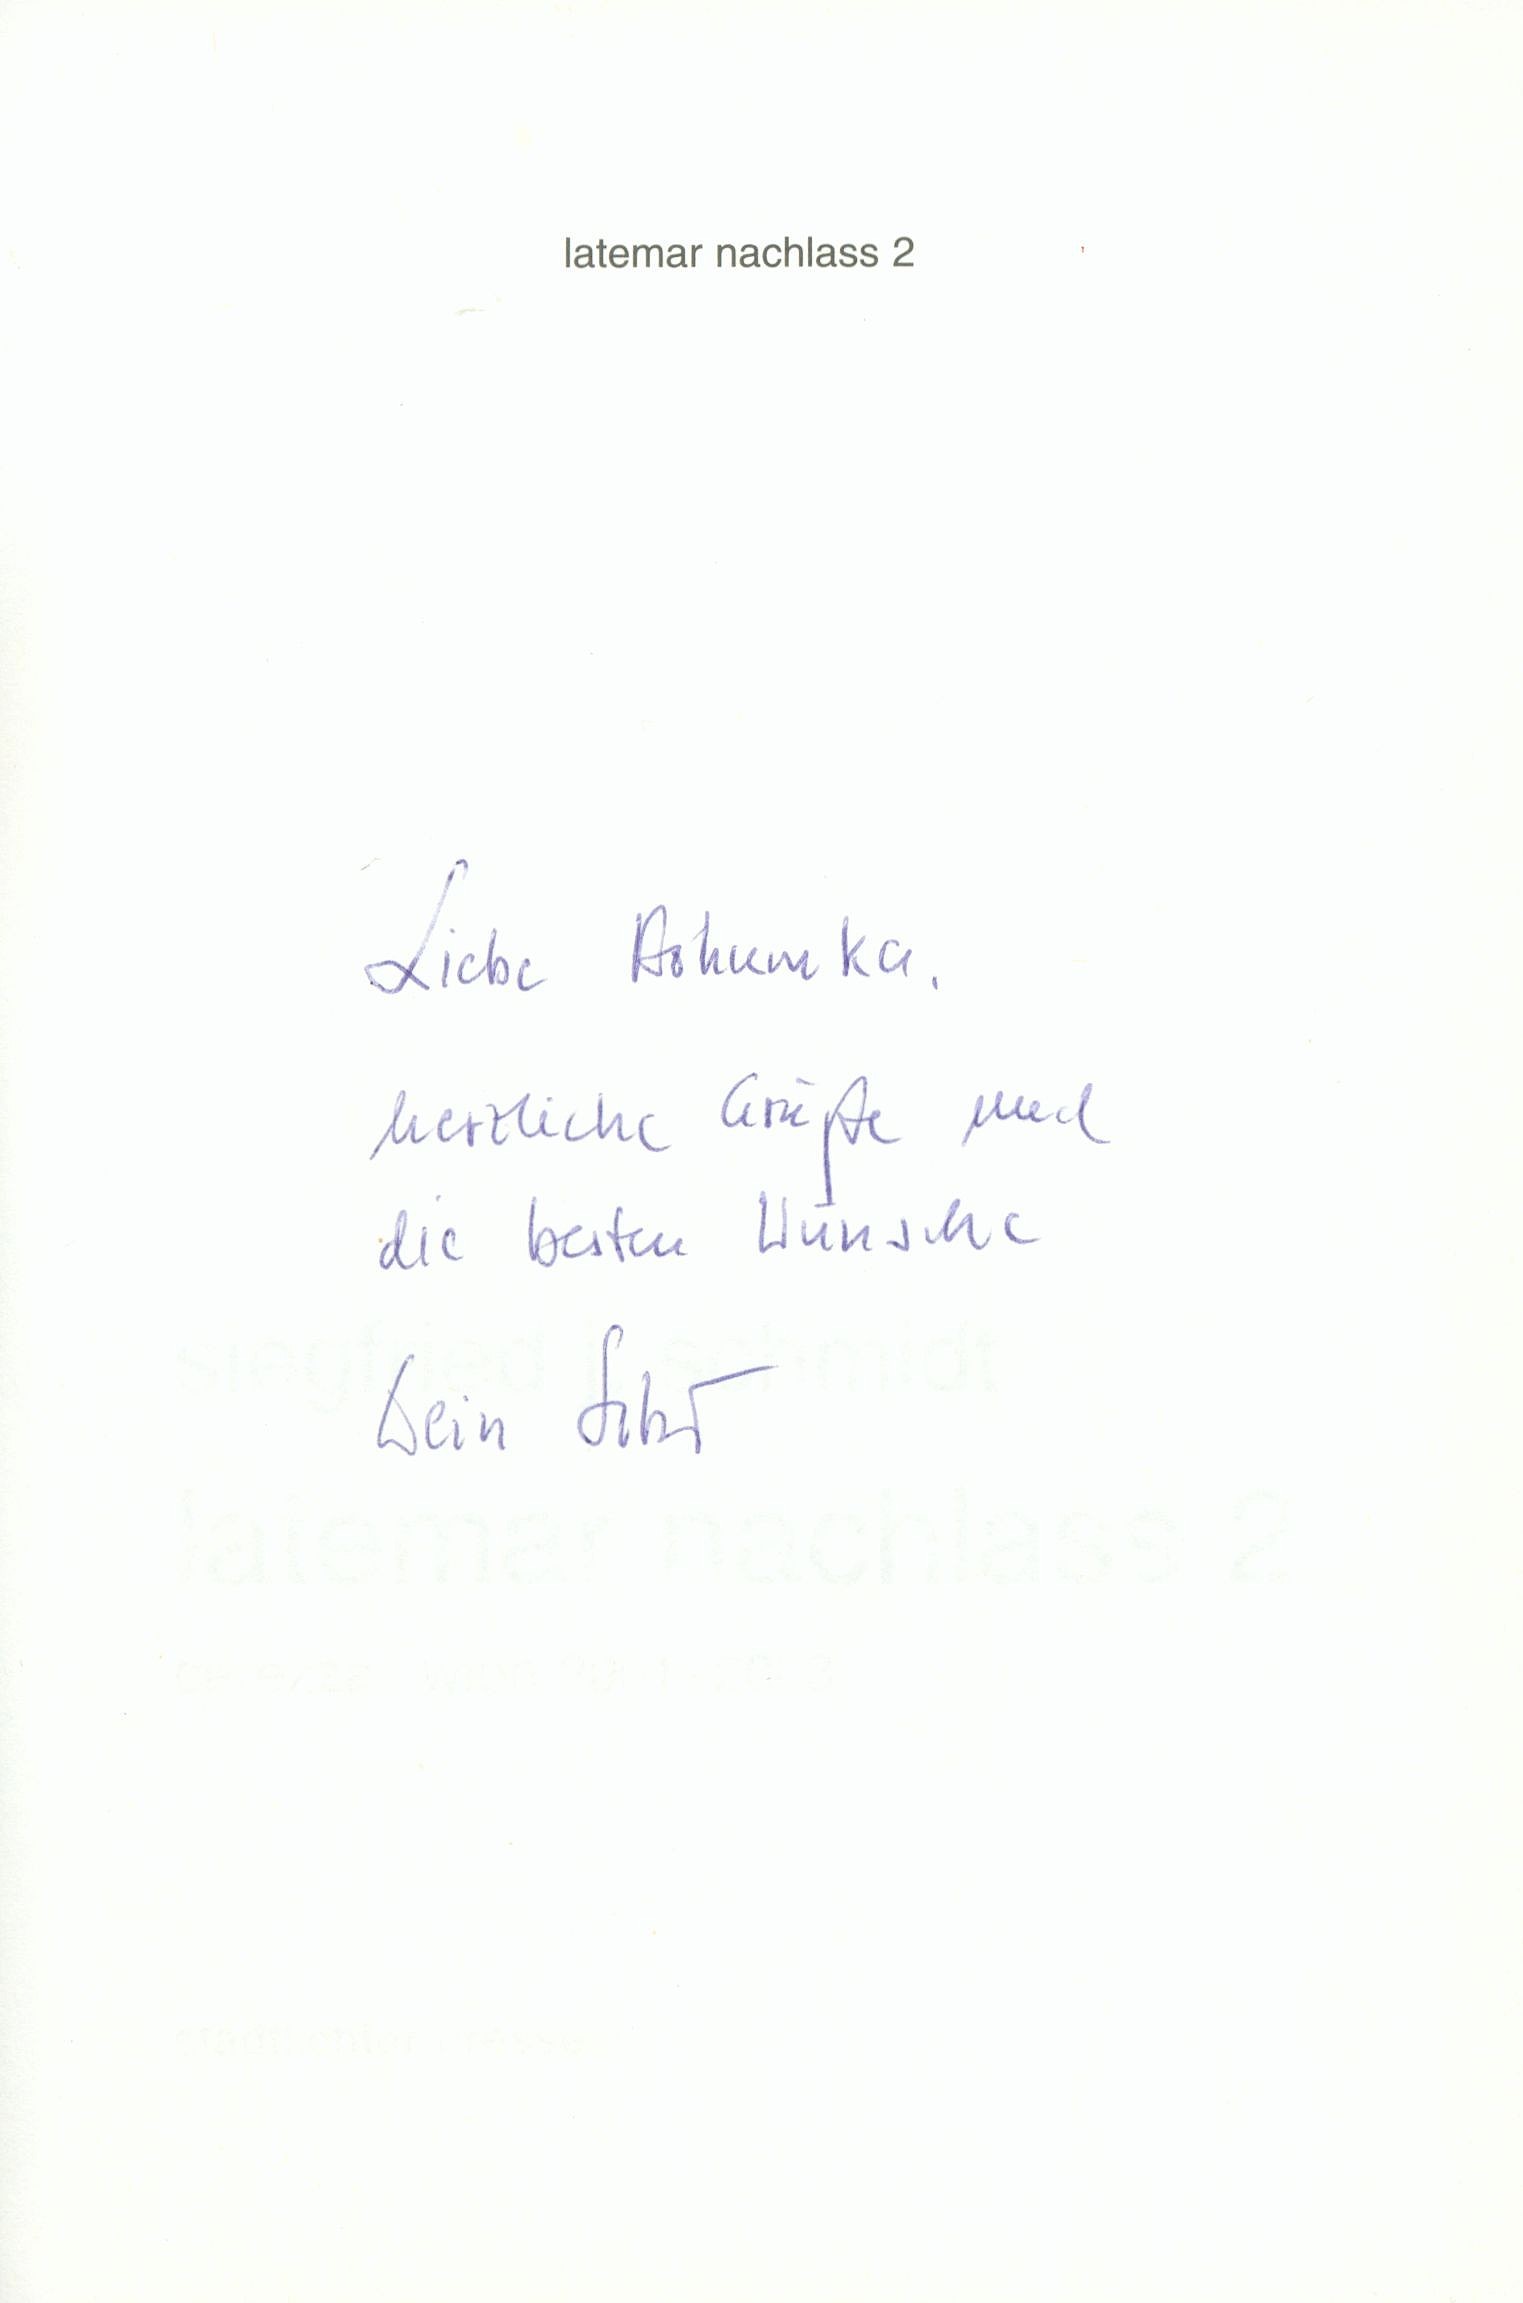 latemar nachlass 2
Liebe Bohumka,
herzliche Grüße und
die besten Wünsche
Dein
siegfried j. schmidt
latemar nachlass 2